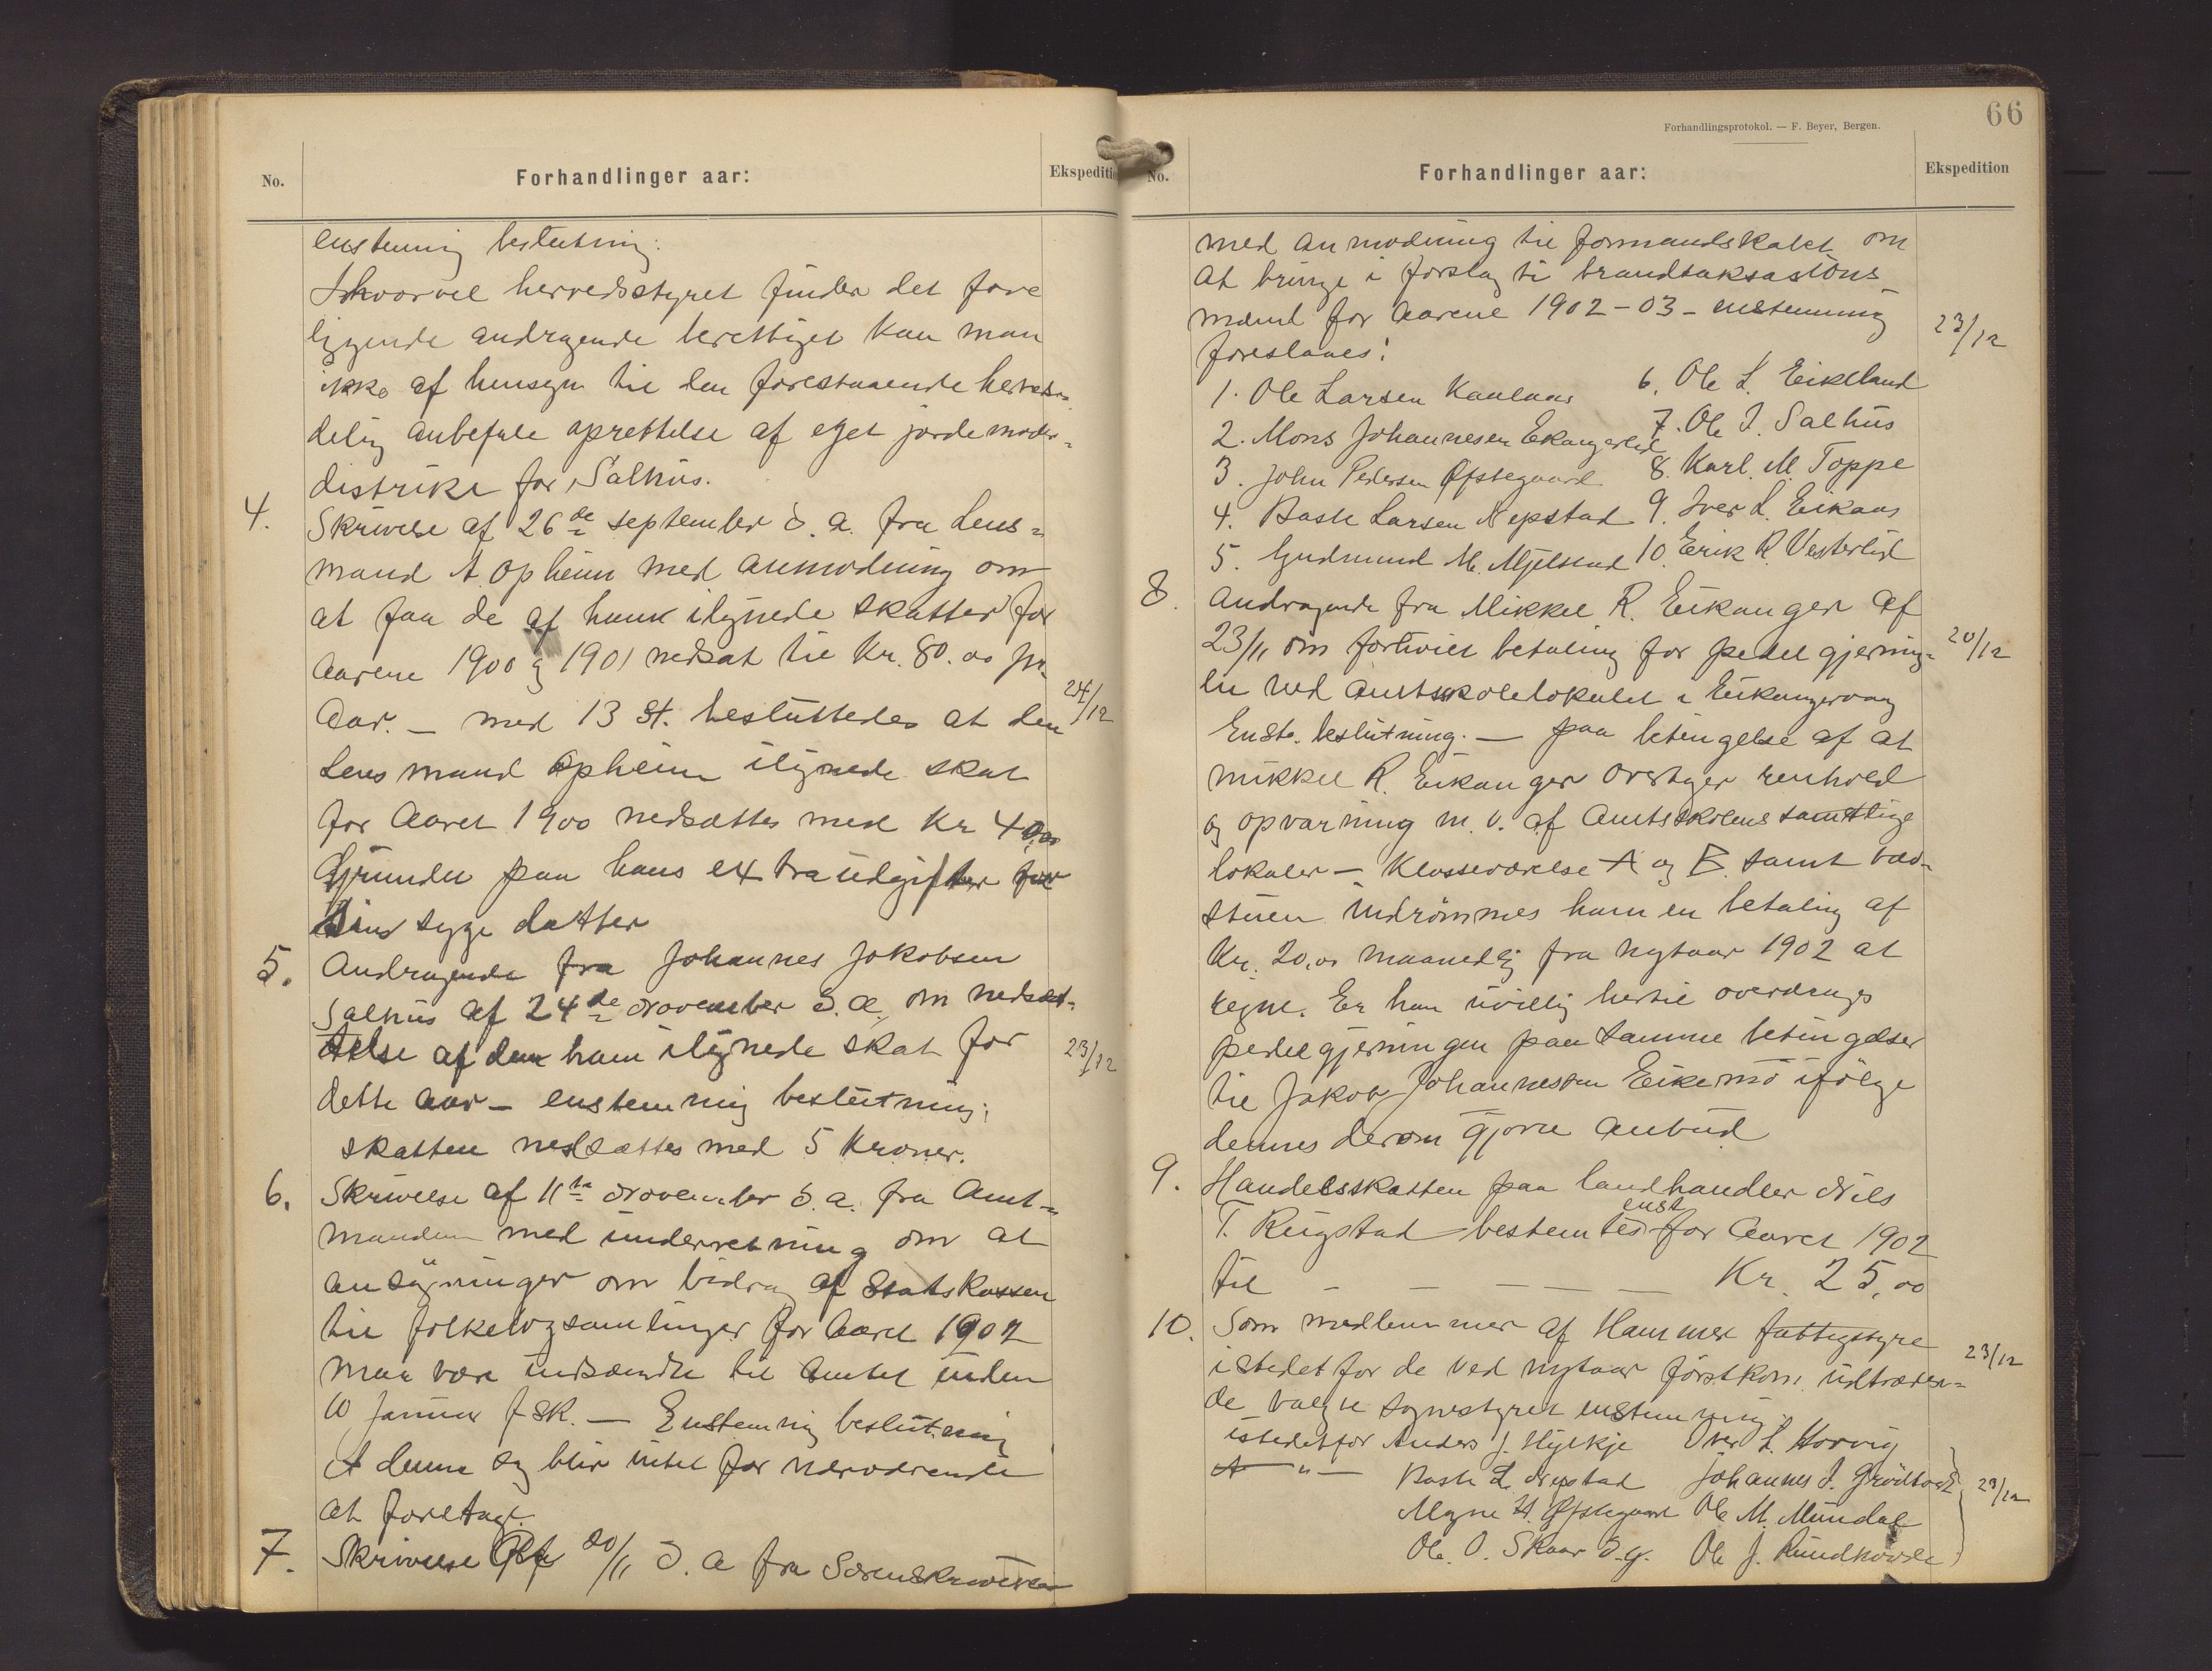 No. Forhandlinger aar: Ekspeditio
enstemig beslutning:
Ihvorvel herredsstyret finder det fore
liggende andragende berettiget kan man
ikke af hensyn til den forestaaende herreds-
delig anbefale oprettelse af eget jordemoder-
distrikt for Salhus.
4. Skrivelse af 26de september d. a. fra Lens-
mand A. Opheim med anmodning om
at faa de af ham ilignede skatter for
Aarene 1900 og 1901 nedsat til Kr. 80.00 pr.
Aar. — med 13 st. besluttedes at den 24/12
Lensmand Opheim ilignede skat
for Aaret 1900 nedsættes med Kr 40.00
Grundet paa hans extra udgifter for
sin syge datter
5. Andragende fra Johannes Jakobsen
Salhus af 24de november d. a. om nedsæt-
telse af den ham ilignede skat for 23/12
dette aar — enstemmig beslutning;
skatten nedsættes med 5 Kroner.
6. Skrivelse af 11te november d. a. fra Amt-
manden med underretning om at
ansøgninger om bidrag af Statskassen
til folkebogsamlinger for Aaret 1902
maa være indsendte til Amtet inden
10 Januar f sk. — Enstemmig beslutning
I denne sag blir intet for nærværende
at foretage.
7. Skrivelse af 20/11 d. a fra Sorenskriveren
66
Forhandlingsprotokol. — F. Beyer, Bergen.
No. Forhandlinger aar: Ekspedition
med anmodning til formandskabet om
at bringe i forslag ti brandtaksastions-
mænd for Aarene 1902-03 - enstemmig 23/12
foreslaaes:
1. Ole Larsen Kaulaas 6. Ole L. Eikeland
2. Mons Johannesen Ekangerlid 7. Ole I. Salhus
3. John Pedersen Øfstegaard 8. Karl. M. Toppe
4. Baste Larsen Nepstad 9. Iver L. Eikaas
5. Gudmund M. Mjelstad 10. Erik R. Vesterlid
8. Andragende fra Mikkel R. Eikanger af
23/11 om forhøiet betaling for pedelgjerning- 20/12
en ved Amtsskolelokalet i Eikangervaag
Enst. beslutning. — paa betingelse af at
Mikkel R. Eikanger overtager renhold
og opvarming m. v. af Amtsskolens samtlige
lokaler — Klasseværelse A og B. samt væv-
stuen indrømmes ham en betaling af
Kr. 20,00 maanedlig fra nytaar 1902 at
regne. Er han uvillig hertil overdrages
pedelgjerningen paa samme betingelser
til Jakob Johannesen Eikemo ifølge
dennes derom gjorte Anbud
9. Handelsskatten paa landhandler Nils
T. Rugstad bestemtes enst for Aaret 1902
til — — — — Kr. 25,00
10. Som medlemmer af Hammer fattigstyre 23/12
istedetfor de ved nytaar førstkom. udtræden-
de valgte sognestyret enstemmig:
istedetfor Anders J. Hylkje Iver L. Horvig
— " — Baste L. Nepstad Johannes J. Grødtveit
Magne H. Øfstegaard Ole M. Mundal 23/12
Ole. O. Skaar d.y. Ole J. Rundhovde